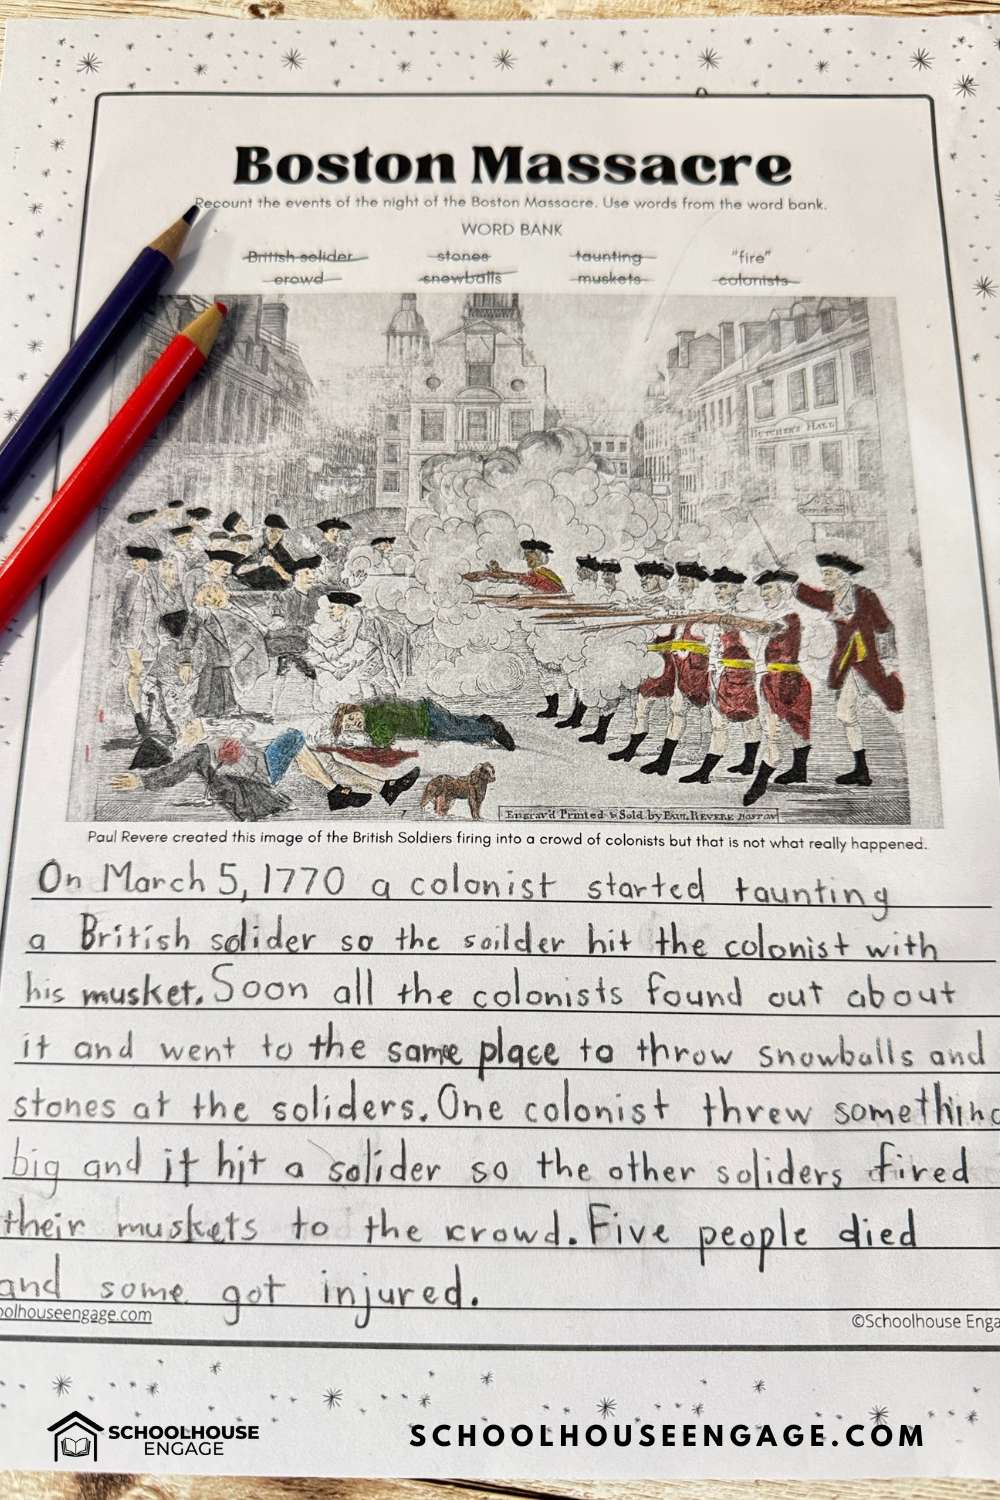 Boston Massacre
Recount the events of the night of the Boston Massacre. Use words from the word bank.
WORD BANK
British solider stones taunting "fire"
crowd snowballs muskets colonists
BUTCHER'S HALL
Engrav'd Printed & Sold by PAUL REVERE BOSTON
Paul Revere created this image of the British Soldiers firing into a crowd of colonists but that is not what really happened.
On March 5, 1770 a colonist started taunting
a British solider so the soilder hit the colonist with
his musket. Soon all the colonists found out about
it and went to the same place to throw snowballs and
stones at the soliders. One colonist threw something
big and it hit a solider so the other soliders fired
their muskets to the crowd. Five people died
and some got injured.
oolhouseengage.com ©Schoolhouse Enga
SCHOOLHOUSE
ENGAGE
SCHOOLHOUSEENGAGE.COM